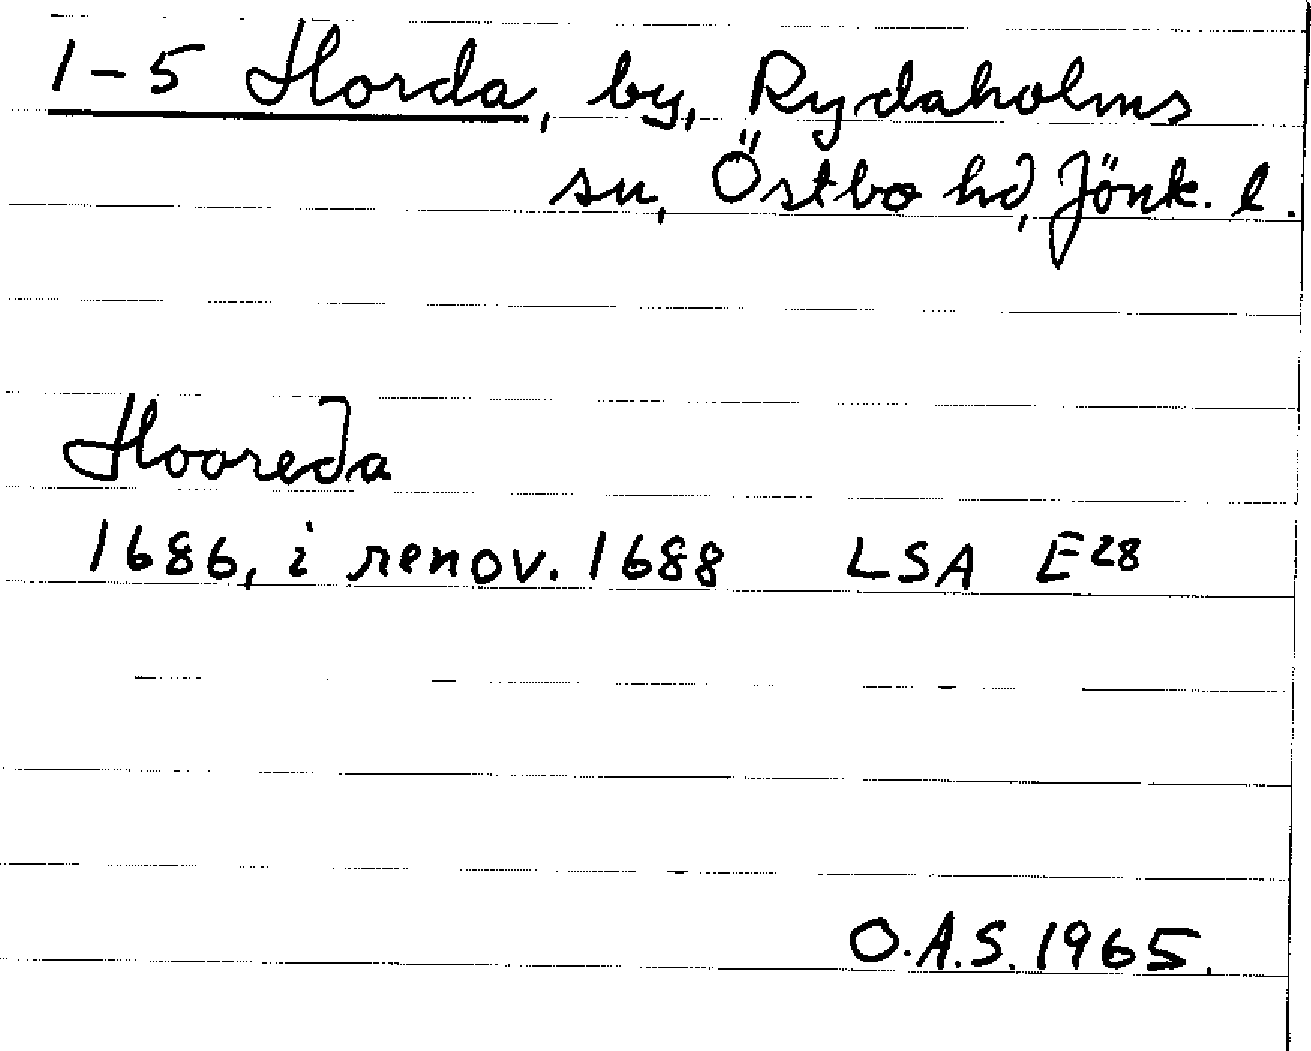 1-5 Horda, by, Rydaholms
sn, Östbo hd, Jönk. l.
Hooreda
1686, i renov. 1688 LSA E28
O.A.S. 1965.